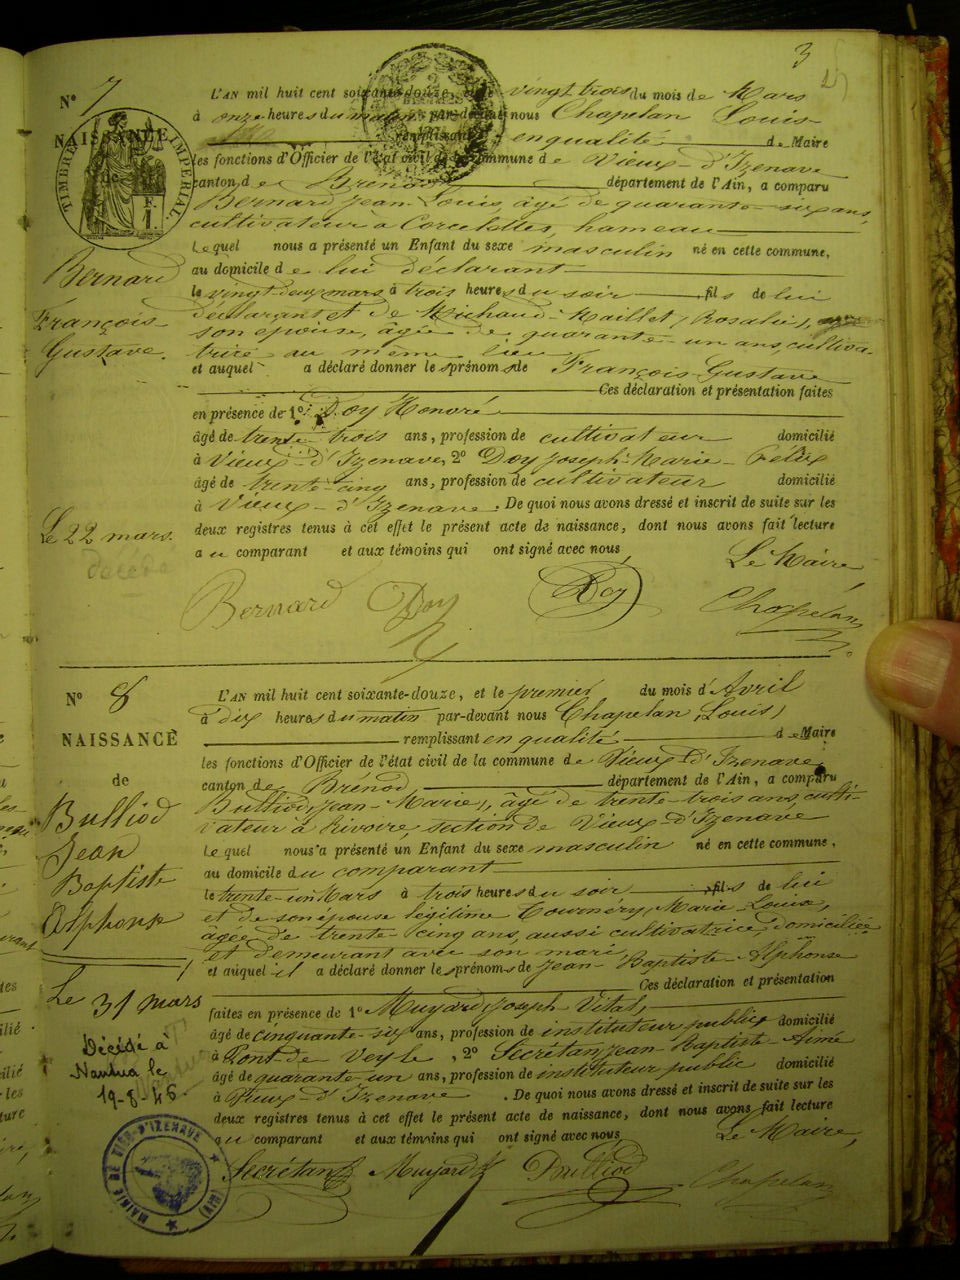 3
N° 7
NAISSANCE
TIMBRE IMPÉRIAL
1 F.
Bernard
François
Gustave.
Le 22 mars.
décédé
L'AN mil huit cent soixante-douze, et le vingt trois du mois de Mars
à onze heures du matin par-devant nous Chapelan Louis
remplissant en qualité de Maire
les fonctions d'Officier de l'état civil de la commune de Vieux-d'Izenave
canton de Brénod département de l'Ain, a comparu
Bernard Jean Louis, âgé de quarante-six ans,
cultivateur à Corcelettes, hameau
lequel nous a présenté un Enfant du sexe masculin né en cette commune,
au domicile de lui déclarant
le vingt-deux mars à trois heures du soir fils de lui
déclarant et de Michaud-Maillet, Rosalie,
son épouse, âgée de quarante-un ans, cultiva-
trice au même lieu
et auquel a déclaré donner les prénoms de François Gustave
Ces déclaration et présentation faites
en présence de 1° Doy Honoré
âgé de trente-trois ans, profession de cultivateur domicilié
à Vieux-d'Izenave, 2° Doy Joseph-Marie-Félix
âgé de trente-cinq ans, profession de cultivateur domicilié
à Vieux-d'Izenave. De quoi nous avons dressé et inscrit de suite sur les
deux registres tenus à cet effet le présent acte de naissance, dont nous avons fait lecture
au comparant et aux témoins qui ont signé avec nous
Le Maire
Bernard Doy Doy Chapelan
N° 8
NAISSANCE
de
Bulliod
Jean
Baptiste
Alphonse
Le 31 mars
Décédé à
Nantua le
19-8-46.
MAIRIE DE VIEUX-D'IZENAVE (AIN)
L'AN mil huit cent soixante-douze, et le premier du mois d'Avril
à dix heures du matin par-devant nous Chapelan, Louis,
remplissant en qualité de Maire
les fonctions d'Officier de l'état civil de la commune de Vieux-d'Izenave
canton de Brénod département de l'Ain, a comparu
Bulliod, Jean-Marie, âgé de trente-trois ans, culti-
vateur à Rivoire, section de Vieux-d'Izenave
lequel nous a présenté un Enfant du sexe masculin né en cette commune,
au domicile du comparant
le trente-un Mars à trois heures du soir fils de lui
et de son épouse légitime Tournéry, Marie-Louise,
âgée de trente-cinq ans, aussi cultivatrice, domiciliée
et demeurant avec son mari
et auquel il a déclaré donner les prénoms de Jean-Baptiste-Alphonse
Ces déclaration et présentation
faites en présence de 1° Muyard, Joseph Vital,
âgé de cinquante-six ans, profession de instituteur public domicilié
à Pont-de-Veyle, 2° Secrétan, Jean-Baptiste-Aimé
âgé de quarante-un ans, profession de instituteur public domicilié
à Vieux-d'Izenave. De quoi nous avons dressé et inscrit de suite sur les
deux registres tenus à cet effet le présent acte de naissance, dont nous avons fait lecture
au comparant et aux témoins qui ont signé avec nous
Le Maire,
Secrétan Muyard Bulliod Chapelan